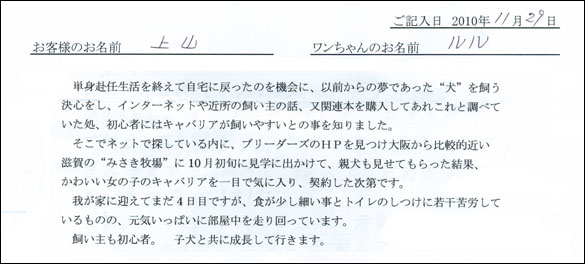 ご記入日 2010年11月29日
お客様のお名前 上山 ワンちゃんのお名前 ルル
単身赴任生活を終えて自宅に戻ったのを機会に、以前からの夢であった“犬”を飼う
決心をし、インターネットや近所の飼い主の話、又関連本を購入してあれこれと調べて
いた処、初心者にはキャバリアが飼いやすいとの事を知りました。
そこでネットで探している内に、ブリーダーズのＨＰを見つけ大阪から比較的近い
滋賀の“みさき牧場”に10月初旬に見学に出かけて、親犬も見せてもらった結果、
かわいい女の子のキャバリアを一目で気に入り、契約した次第です。
我が家に迎えてまだ４日目ですが、食が少し細い事とトイレのしつけに若干苦労して
いるものの、元気いっぱいに部屋中を走り回っています。
飼い主も初心者。 子犬と共に成長して行きます。